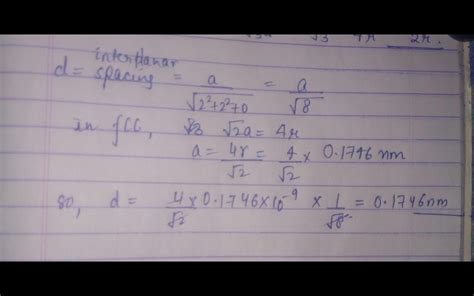 √3 4r 2r.
d = interplanar spacing = a/√(2²+2²+0) = a/√8
in fCC, √2a = 4r
a = 4r/√2 = 4/√2 × 0.1746 nm
so, d = 4/√2 × 0.1746×10⁻⁹ × 1/√8 = 0.1746nm